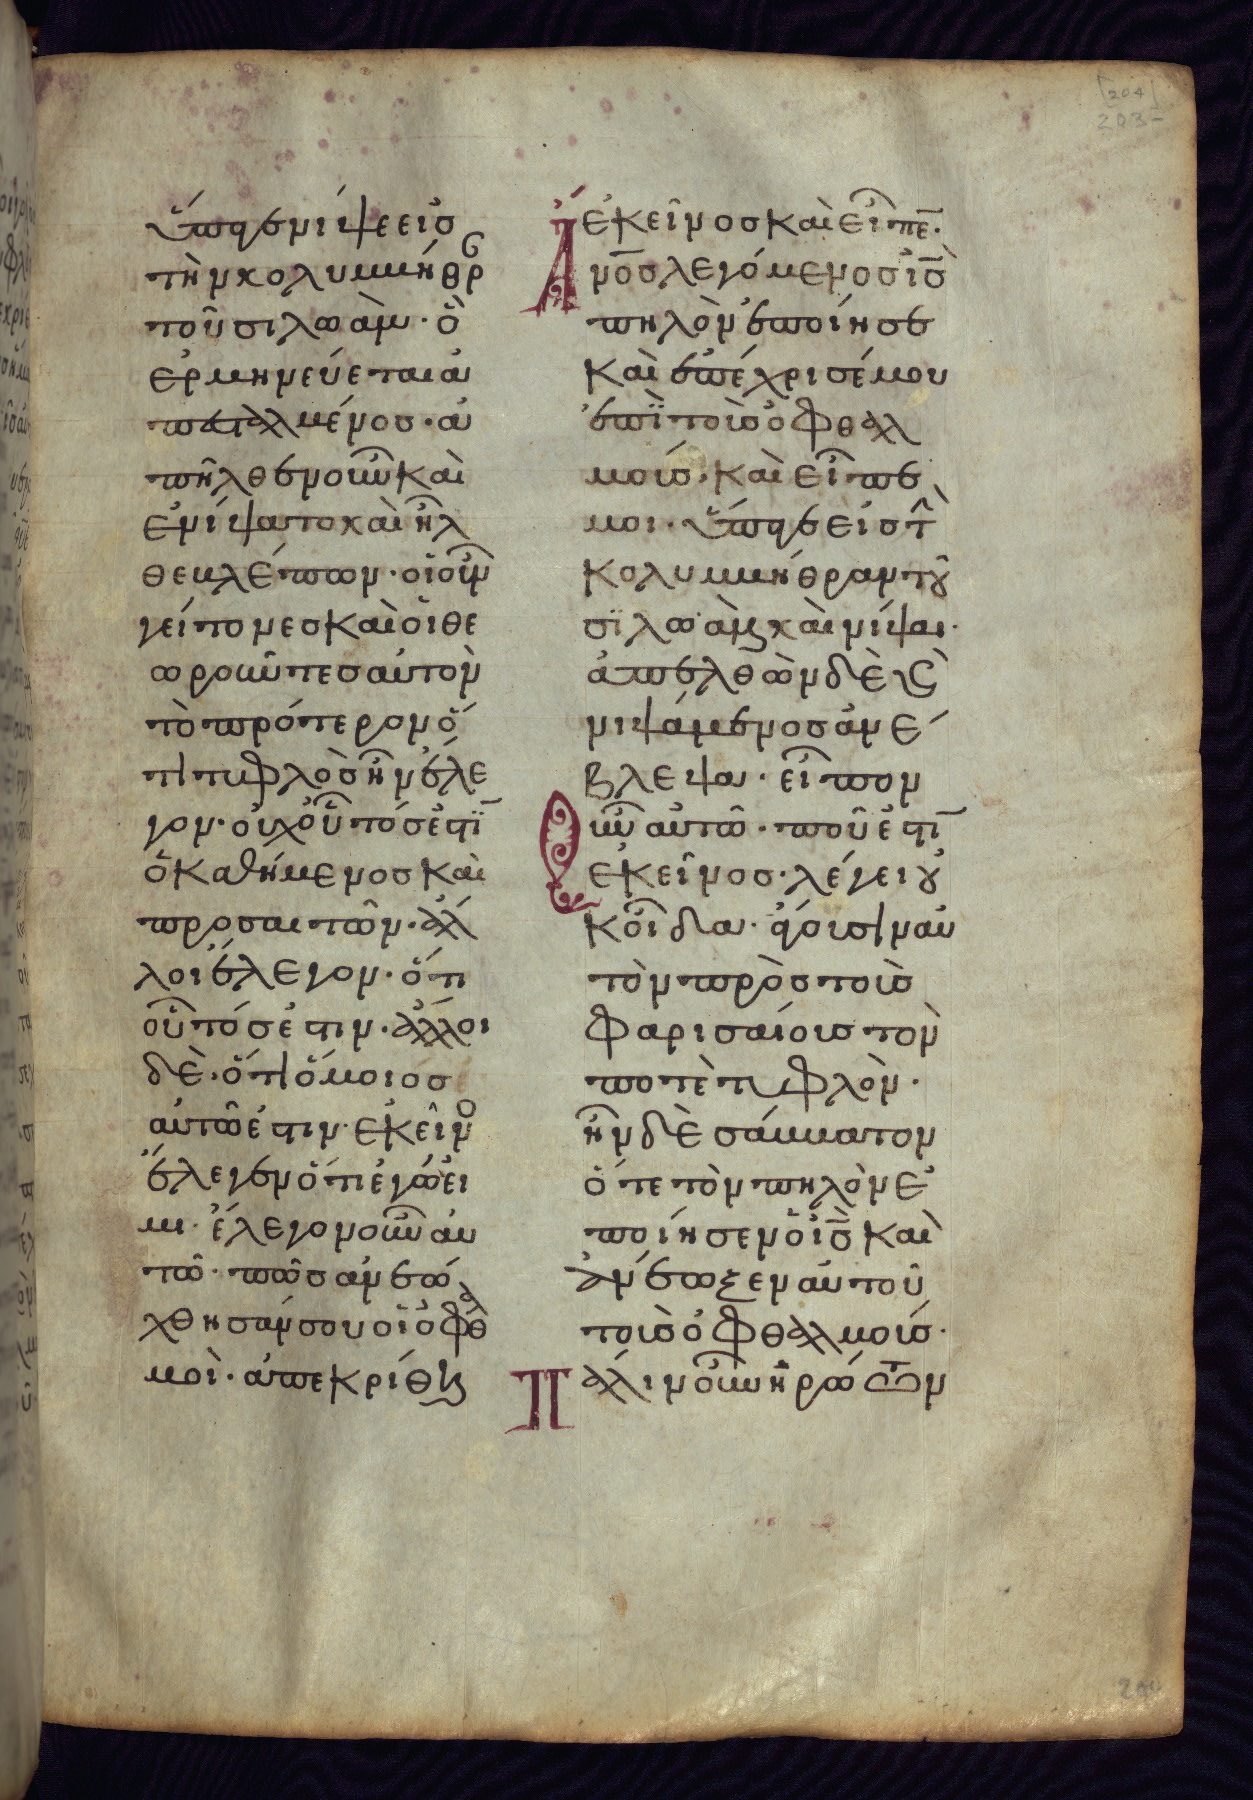 [204]
203
ὕπαγε νίψε εἰσ
τὴν κολυμβήθρ
τοῦ σιλωάμ· ὃ
ἑρμηνεύεται ἀ
πεσταλμένοσ· ἀ
πῆλθεν οὖν καὶ
ἐνίψατο καὶ ἦλ
θε βλέπων· οἱ οὖν
γείτονεσ καὶ οἱ θε
ωροῦντεσ αὐτὸν
τὸ πρότερον ὅ
τι τυφλὸσ ἦν ἔλε
γον· οὐχ οὗτόσ ἐστϊ
ὁ καθήμενοσ καὶ
προσαιτῶν· ἄλ
λοι ἔλεγον· ὅτι
οὗτόσ ἐστιν· ἄλλοι
δὲ· ὅτι ὅμοιοσ
αὐτῶ ἐστιν· ἐκεῖνο
ἔλεγεν ὅτι ἐγώ εἰ
μι· ἔλεγον οὖν αὐ
τῶ· πῶσ ἀνεώ
χθησάν σου οἱ ὀφθαλ
μοὶ· ἀπεκρίθη
ἐκεῖνοσ καὶ εἶπε̅·
Ἄνο̅σ λεγόμενοσ ι̅σ̅
πηλὸν ἐποίησε
καὶ ἐπέχρισέ μου
ἐπῒ τοὺσ ὀφθαλ
μούσ· καὶ εἶπε
μοι· ὕπαγε εἰσ τὴ
κολυμβήθραν τοῦ
σϊλωὰμ καὶ νίψαι·
ἀπελθὼν δὲ καὶ
νιψάμενοσ ἀνέ
βλεψα· εἶπον
Οὖν αὐτῶ· ποῦ ἐστι̅
ἐκεῖνοσ· λέγει οὐ
κ οἶδα· ἄγουσιν αὐ
τὸν πρὸσ τοὺσ
φαρισαίουσ τὸν
ποτὲ τυφλὸν·
ἦν δὲ σάββατον
ὅτε τὸν πηλὸν ἐ
ποίησεν ὁ ι̅σ̅ καὶ
ἀνέωξεν αὐτοῦ
τοὺσ ὀφθαλμούσ·
Πάλιν οὖν ἠρώτων